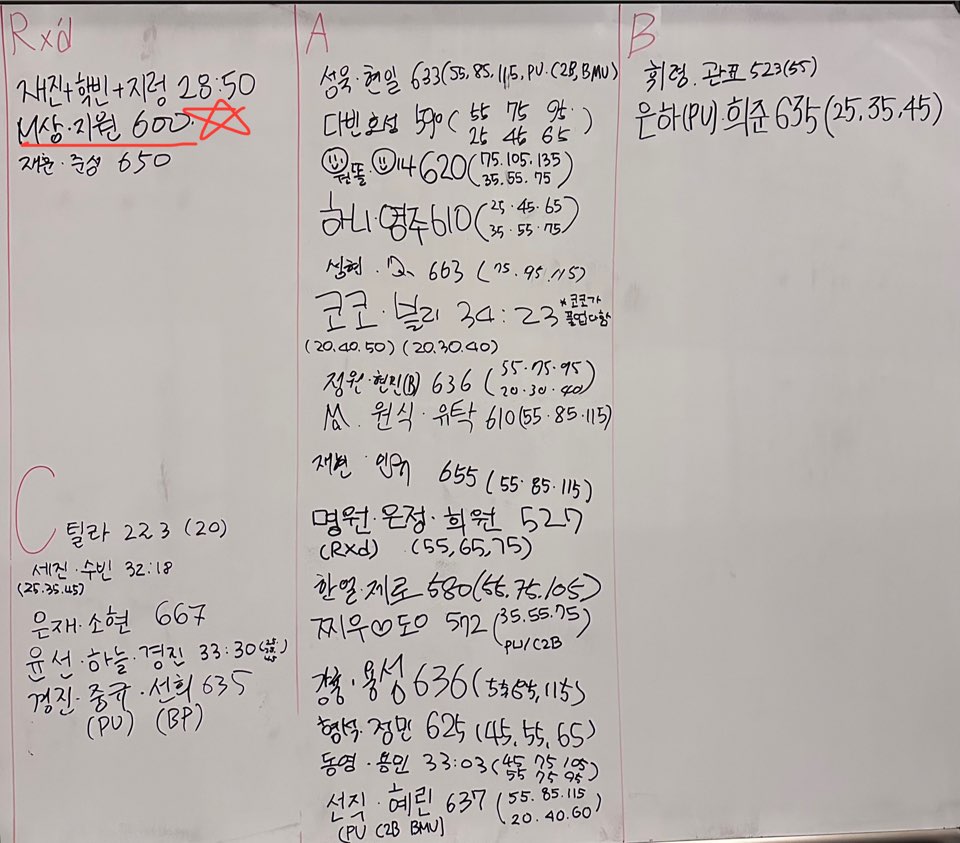 Rx'd
재진+학빈+지렁 28:50
M상·지원 600
재훈·준성 650
C
틸라 223 (20)
세진·수빈 32:18
(25.35.45)
은재·소현 667
윤선·하늘·경진 33:30
경진·중규·선희 635
(PU) (BP)
A
성욱·현일 633(55,85,115, PU·C2B,BMU)
다빈 호성 590( 55 75 95
25 45 65 )
원똘· 14 620(75.105.135
35.55.75)
하니·영주 610(25·45·65
35·55·75)
성현· 663 (75.95.115)
코코·블리 34:23 *코코가
풀업다함
(20.40.50) (20.30.40)
정원·현진(B) 636 (55·75·95
20·30·40)
M. 원식·유탁 610(55·85·115)
재변·인규 655 (55·85·115)
명원·은정·희원 527
(RXd) (55,65,75)
한얼·제로 580(55.75.105)
찌우♡도우 572 (35.55.75)
PU/C2B
경홍·용성 636( 115)
형석·정민 625 (45,55,65)
동영·용민 33:03(45 75 105
55 75 95)
선직·혜린 637 (55.85.115
20.40.60)
(PU C2B BMU)
B
휘령·관표 523(55)
은하(PU)·희준 635(25,35,45)